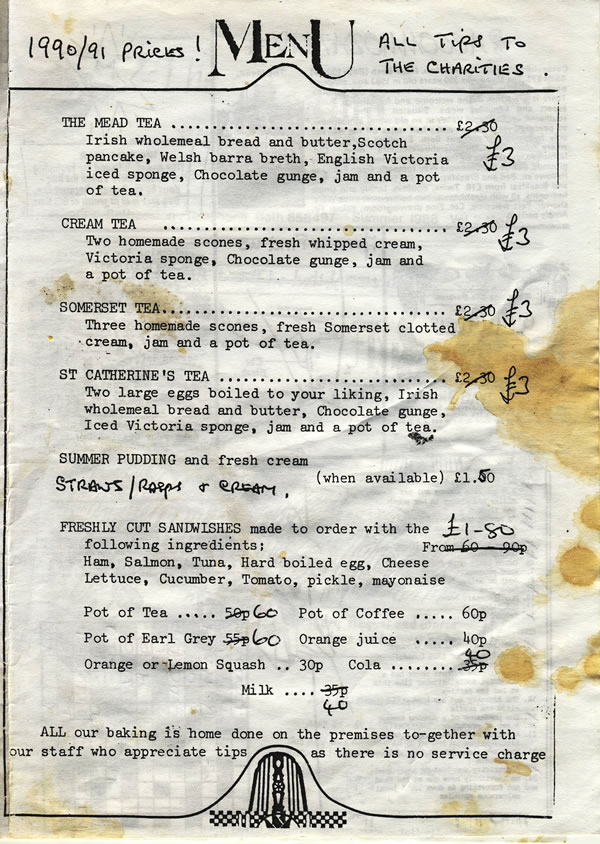 1990/91 PRICES! MENU ALL TIPS TO
THE CHARITIES.
THE MEAD TEA ................................. £2.30 £3
Irish wholemeal bread and butter,Scotch
pancake, Welsh barra breth, English Victoria
iced sponge, Chocolate gunge, jam and a pot
of tea.
CREAM TEA .................................. £2.30 £3
Two homemade scones, fresh whipped cream,
Victoria sponge, Chocolate gunge, jam and
a pot of tea.
SOMERSET TEA.................................. £2.30 £3
Three homemade scones, fresh Somerset clotted
cream, jam and a pot of tea.
ST CATHERINE'S TEA ........................... £2.30 £3
Two large eggs boiled to your liking, Irish
wholemeal bread and butter, Chocolate gunge,
Iced Victoria sponge, jam and a pot of tea.
SUMMER PUDDING and fresh cream
(when available) £1.50
STRAWS/RASPS & CREAM.
FRESHLY CUT SANDWISHES made to order with the £1-80
following ingredients; From 60 - 90p
Ham, Salmon, Tuna, Hard boiled egg, Cheese
Lettuce, Cucumber, Tomato, pickle, mayonaise
Pot of Tea ..... 50p 60 Pot of Coffee ..... 60p
Pot of Earl Grey 55p 60 Orange juice ..... 40p
Orange or Lemon Squash .. 30p Cola ........ 35p 40
Milk .... 35p
40
ALL our baking is home done on the premises to-gether with
our staff who appreciate tips as there is no service charge